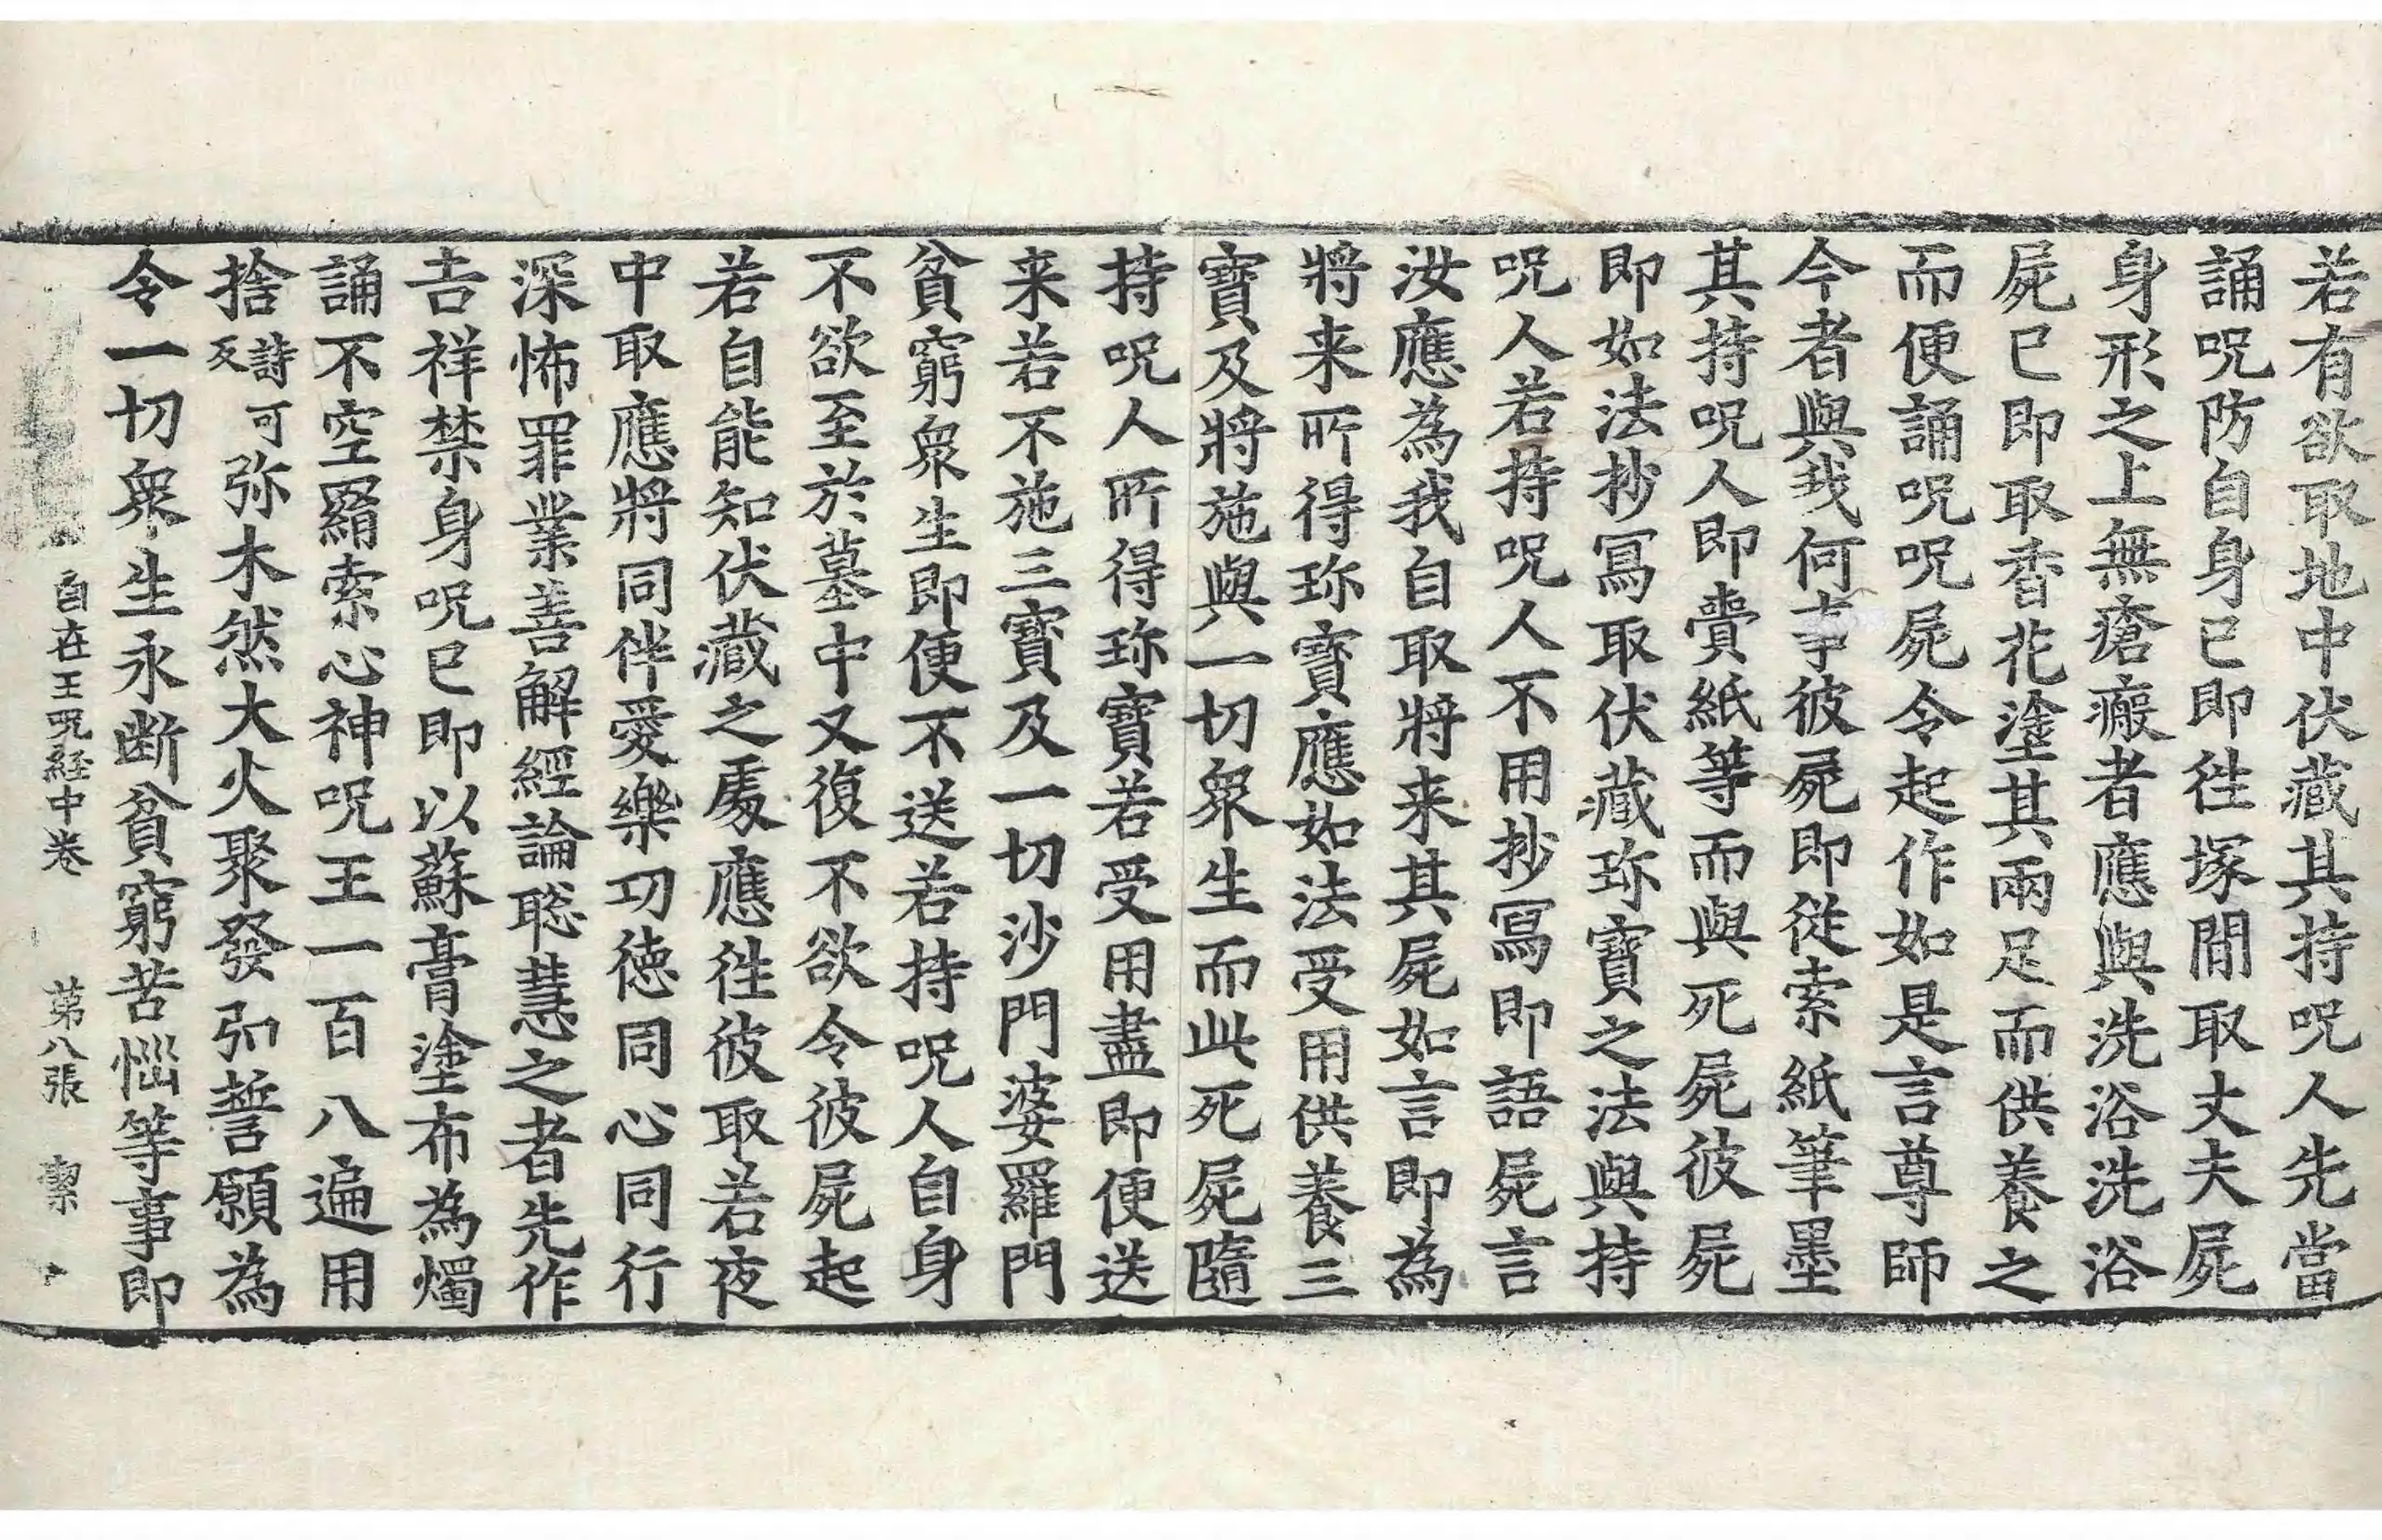 若有欲取地中伏藏其持呪人先當
誦呪防自身已即徃塚閒取丈夫屍
身形之上無瘡瘢者應與洗浴洗浴
屍已即取香花塗其兩足而供養之
而便誦呪呪屍令起作如是言尊師
今者與我何事彼屍即從索紙筆墨
其持呪人即賷紙等而與死屍彼屍
即如法抄冩取伏藏珎寶之法與持
呪人若持呪人不用抄冩即語屍言
汝應為我自取將来其屍如言即為
將来所得珎寶應如法受用供養三
寶及將施與一切衆生而此死屍隨
持呪人所得珎寶若受用盡即便送
来若不施三寶及一切沙門婆羅門
貧窮衆生即便不送若持呪人自身
不欲至於墓中又復不欲令彼屍起
若自能知伏藏之處應徃彼取若夜
中取應將同伴愛樂功徳同心同行
深怖罪業善解經論聡慧之者先作
吉祥禁身呪已即以蘇膏塗布為燭
誦不空羂索心神呪王一百八遍用
捨詩可反弥木然大火聚發弘誓願為
令一切衆生永断貧窮苦惱等事即
自在王呪経中卷 第八張 潔